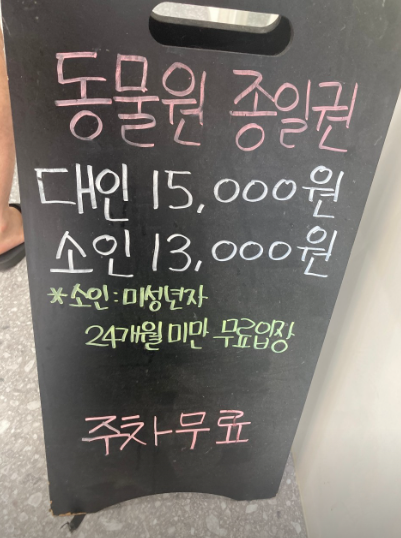 동물원 종일권
대인 15,000원
소인 13,000원
*소인:미성년자
24개월 미만 무료입장
주차무료